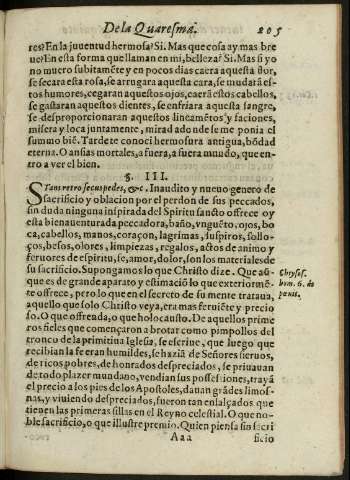 De la Quaresma. 205
res? En la juuentud hermosa? Si. Mas que cosa ay mas bre
ue? En esta forma que llaman en mi, belleza? Si. Mas si yo
no muero subitamẽte y en pocos dias caera aquesta flor,
se secara esta rosa, se arrugara aquesta cara, se mudarã es-
tos humores, cegaran aquestos ojos, caerã estos cabellos,
se gastaran aquestos dientes, se enfriara aquesta sangre,
se desproporcionaran aquestos lineamẽtos y faciones,
misera y loca juntamente, mirad adonde se me ponia el
summo biẽ. Tarde te conoci hermosura antigua, bõdad
eterna. O ansias mortales, a fuera, a fuera mundo, que en-
tro a ver el bien.
§. III.
Stans retro secus pedes, &c. Inaudito y nueuo genero de
sacrificio y oblacion por el perdon de sus peccados,
sin duda ninguna inspirada del Spiritu sancto offrece oy
esta bienauenturada peccadora, baño, vnguẽto, ojos, bo
ca, cabellos, manos, coraçon, lagrimas, suspiros, sollo-
ços, besos, olores, limpiezas, regalos, actos de animo y
feruores de espiritu, fe, amor, dolor, son los materiales de
su sacrificio. Supongamos lo que Christo dize. Que aũ-
que es de grande aparato y estimaciõ lo que exteriormẽ-
te offrece, pero lo que en el secreto de su mente trataua,
aquello que solo Christo veya, era mas feruiẽte y precio
so. O que offrenda, o que holocausto. De aquellos prime
ros fieles que començaron a brotar como pimpollos del
tronco de la primitiua Iglesia, se escriue, que luego que
recibian la fe eran humildes, se haziã de Señores sieruos,
de ricos pobres, de honrados despreciados, se priuauan
de todo plazer mundano, vendian sus possessiones, trayã
el precio a los pies de los Apostoles, dauan grãdes limos-
nas, y viuiendo despreciados, fueron tan ensalçados que
tienen las primeras sillas en el Reyno celestial. O que no-
ble sacrificio, o que illustre premio. Quien piensa sin sacri
Aaa ficio
Chrysos.
hom. 6. de
penit.